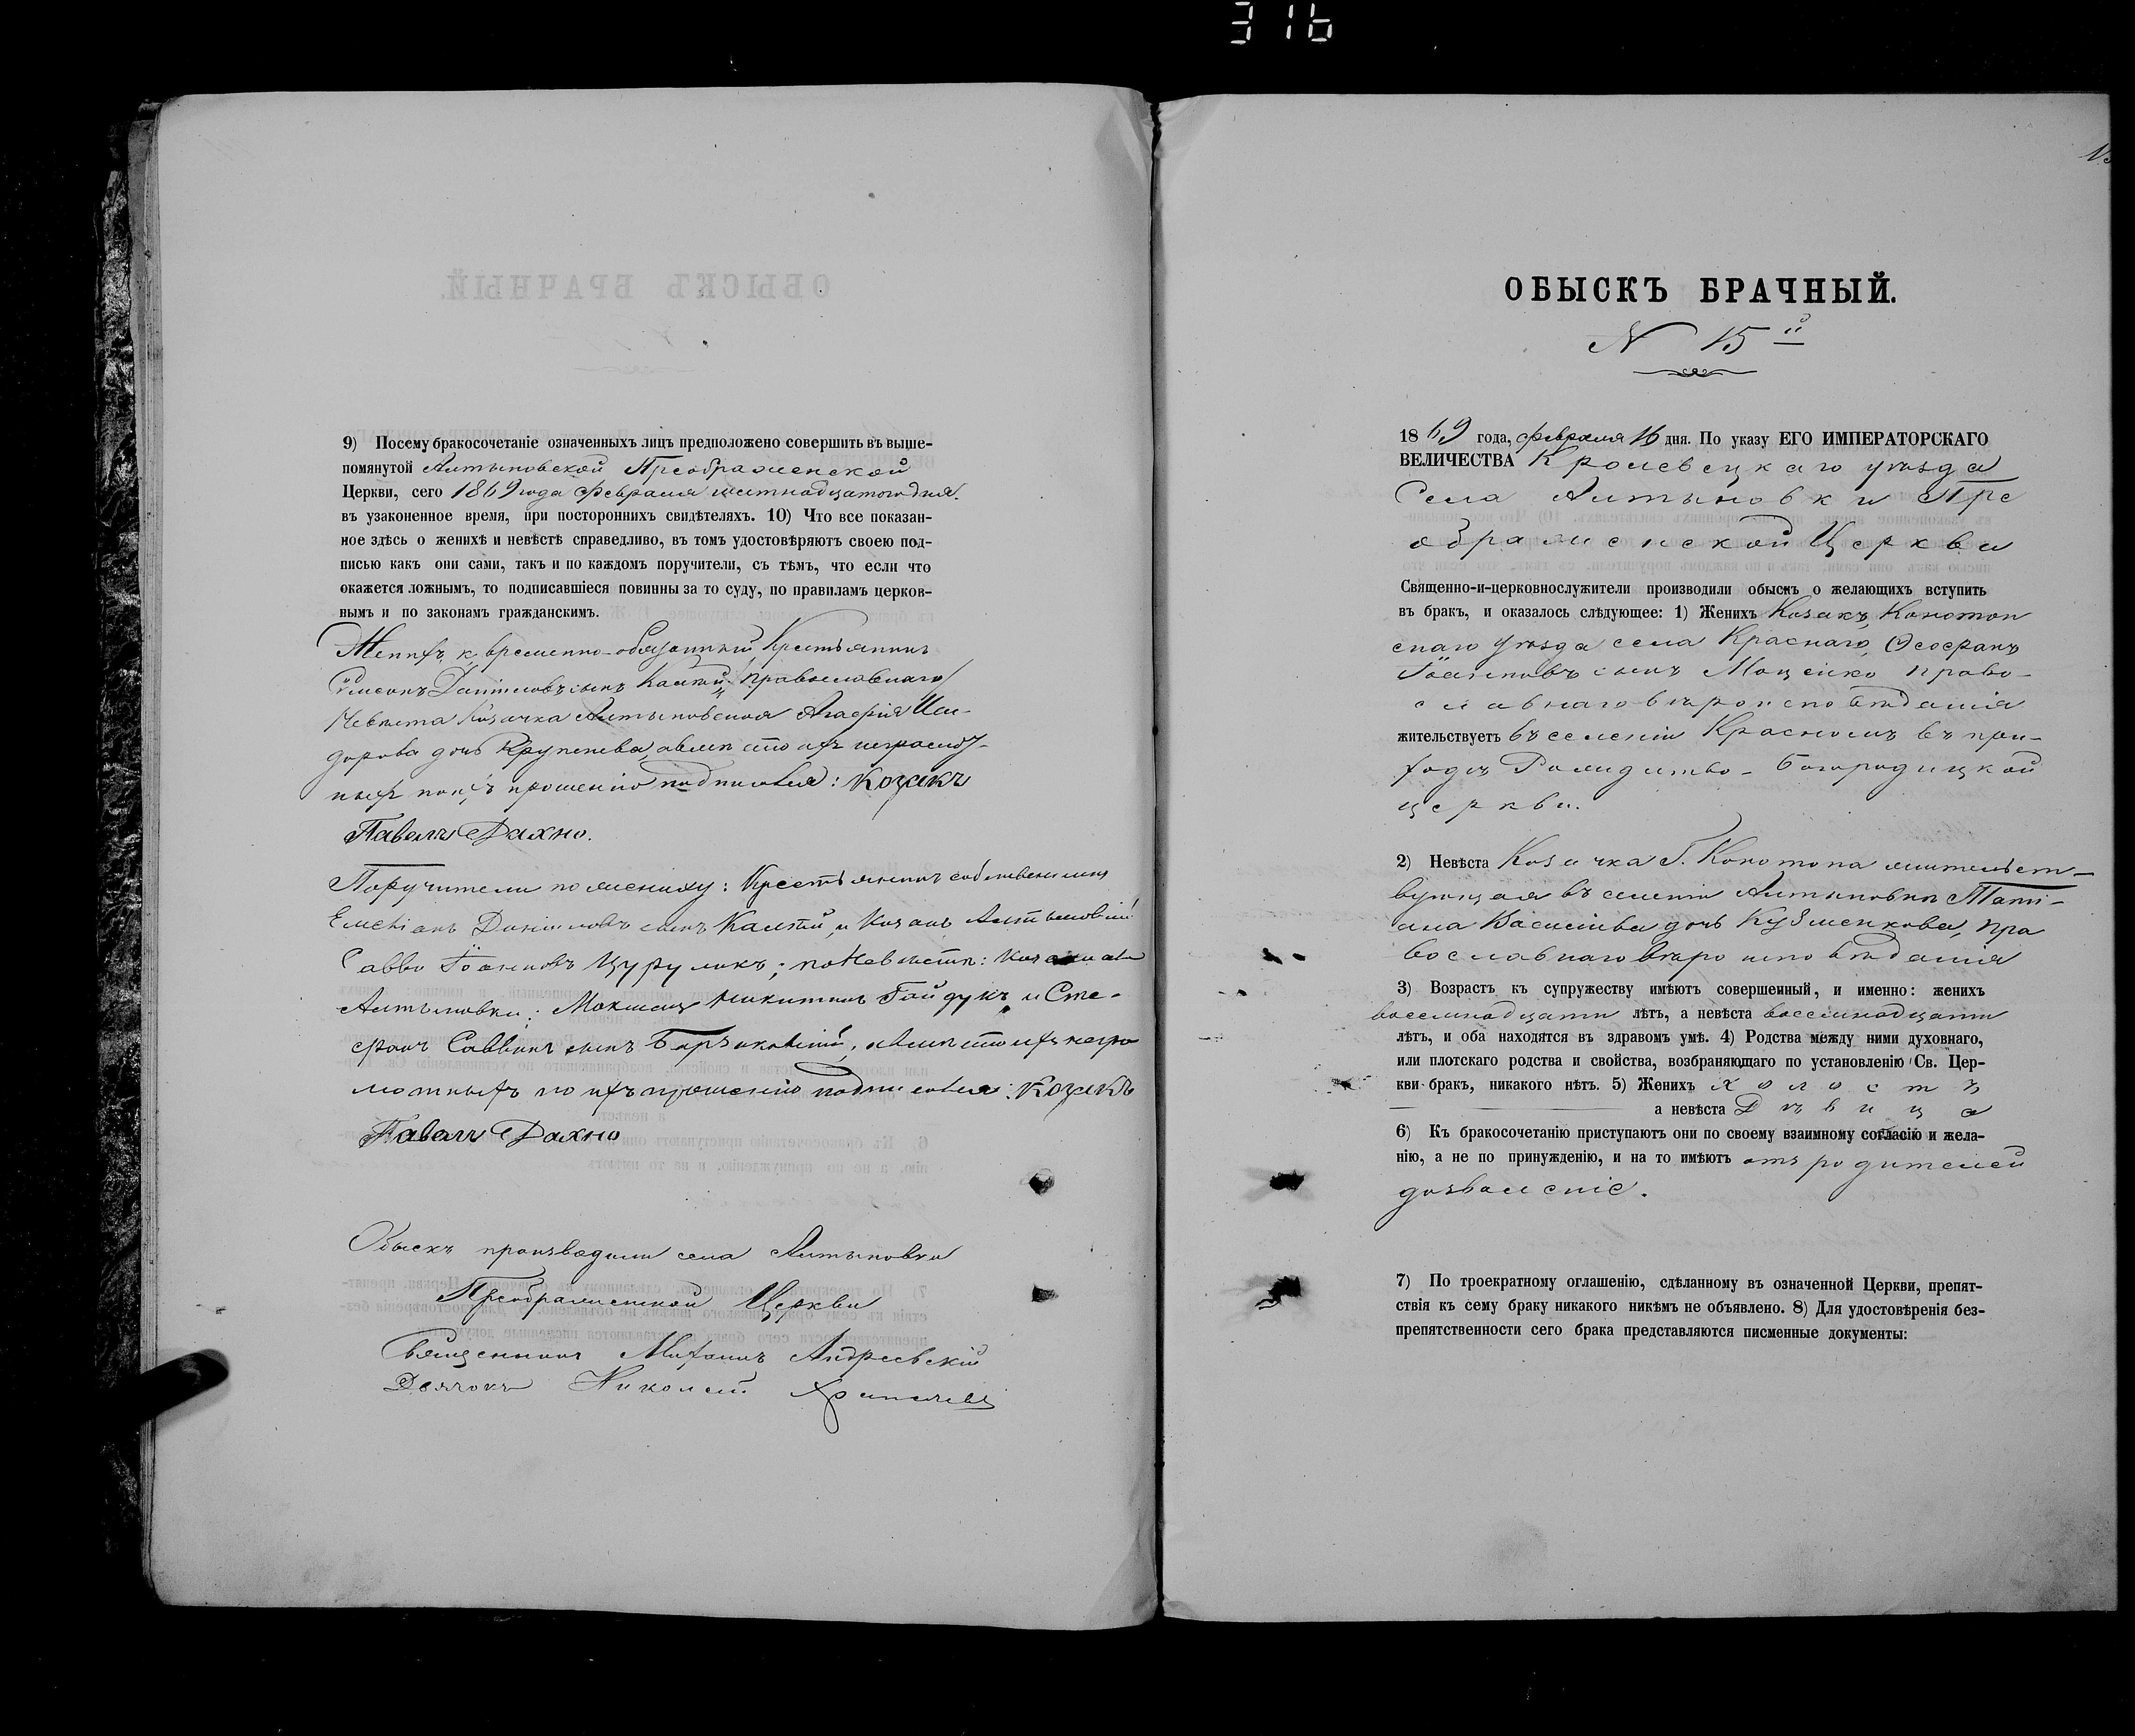 316
9) Посему бракосочетаніе означенныхъ лицъ предположено совершить въ выше-
помянутой Алтыновской Преображенской
Церкви, сего 1869 года Февраля шестнадцатого дня.
въ узаконенное время, при постороннихъ свидѣтеляхъ. 10) Что все показан-
ное здѣсь о женихѣ и невѣстѣ справедливо, въ томъ удостовѣряютъ своею под-
писью какъ они сами, такъ и по каждомъ поручители, съ тѣмъ, что если что
окажется ложнымъ, то подписавшіеся повинны за то суду, по правиламъ церков-
нымъ и по законамъ гражданскимъ.
Женихъ временно-обязанный Крестьянинъ
Даніиловъ сынъ православнаго
Невѣста Козачка Алтыновская Агафія
дорова дочь а вмѣсто ихъ неграмот-
ныхъ по ихъ прошенію подписался: Козакъ
Павелъ Дахно.
Поручители по жениху: Крестьянинъ собственникъ
Емеліанъ Даніиловъ сынъ и Козакъ Алтыновскій
Савва Іоанновъ Цурупикъ; по Невѣстѣ: Козаки
Алтыновки: Максимъ Никитинъ Гайдукъ и Сте-
фанъ Саввинъ сынъ а вмѣсто ихъ негра
мотныхъ по ихъ прошенію подписался: Козакъ
Павелъ Дахно
Обыскъ производили села Алтыновки
Преображенской Церкви
Священникъ Михаилъ Андреевскій
Дьячокъ Николай
ОБЫСКЪ БРАЧНЫЙ.
N 15й
1869 года, февраля 16 дня. По указу ЕГО ИМПЕРАТОРСКАГО
ВЕЛИЧЕСТВА Кролевецкаго уѣзда
Села Алтыновки Пре
ображенской Церкви
Священно-и-церковнослужители производили обыскъ о желающихъ вступить
въ бракъ, и оказалось слѣдующее: 1) Женихъ Козакъ, Конотоп
скаго уѣзда села Краснаго, Ѳеофанъ
Іоанновъ сынъ Моценко право-
славнаго вѣроисповѣданія
жительствуетъ въ селеніи Красномъ въ при-
ходѣ Рождество-Богородицкой
церкви.
2) Невѣста Козачка Г. Конотопа жительст-
вующая въ селеніи Алтыновкѣ Таті-
ана Васильева дочь Кузменкова, пра
вославнаго вѣроисповѣданія
3) Возрастъ къ супружеству имѣютъ совершенный, и именно: женихъ
восемнадцати лѣтъ, а невѣста восемнадцати
лѣтъ, и оба находятся въ здравомъ умѣ. 4) Родства между ними духовнаго,
или плотскаго родства и свойства, возбраняющаго по установленію Св. Цер-
кви бракъ, никакого нѣтъ. 5) Женихъ холостъ
а невѣста Дѣвица
6) Къ бракосочетанію приступаютъ они по своему взаимному согласію и жела-
нію, а не по принужденію, и на то имѣютъ отъ родителей
дозволеніе.
7) По троекратному оглашенію, сдѣланному въ означенной Церкви, препят-
ствія къ сему браку никакого никѣмъ не объявлено. 8) Для удостовѣренія без-
препятственности сего брака представляются писменные документы: